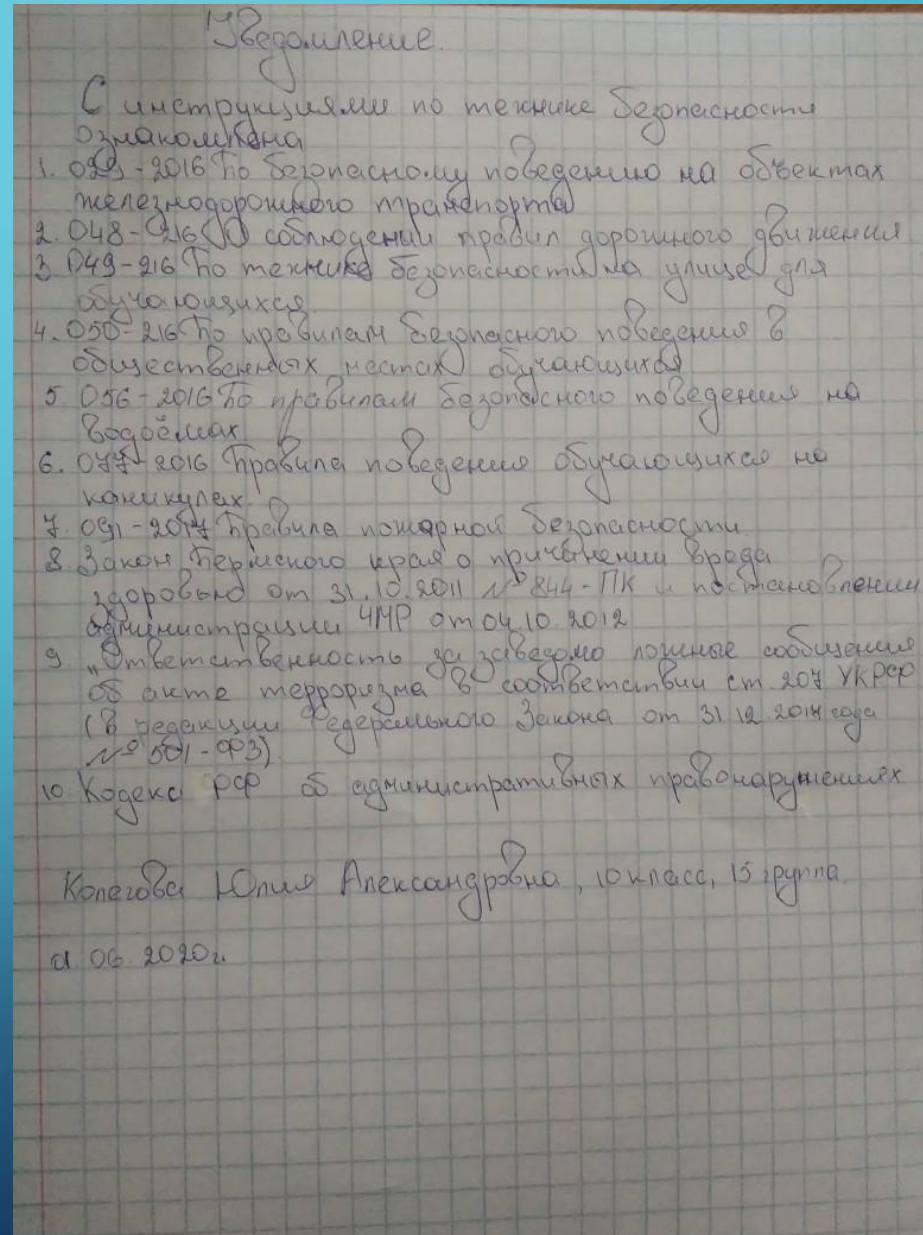 Уведомление.
С инструкциями по технике безопасности
ознакомлена
1. 029-2016 По безопасному поведению на объектах
железнодорожного транспорта
2. 048-216 О соблюдении правил дорожного движения
3 049-216 По технике безопасности на улице для
обучающихся
4. 050-216 По правилам безопасного поведения в
общественных местах обучающихся
5 056-2016 По правилам безопасного поведения на
водоёмах
6. 077-2016 Правила поведения обучающихся на
каникулах.
7. 091-2017 Правила пожарной безопасности.
8. Закон Пермского края о причинении вреда
здоровью от 31.10.2011 № 844-ПК и постановлении
администрации ЧМР от 04.10.2012
9 „Ответственность за заведомо ложные сообщения
об акте терроризма в соответствии ст. 207 УКРФ
(В редакции Федерального Закона от 31 12 2014 года
№ 501-ФЗ)
10 Кодекс РФ об административных правонарушениях
Колегова Юлия Александровна, 10 класс, 15 группа.
06. 2020г.